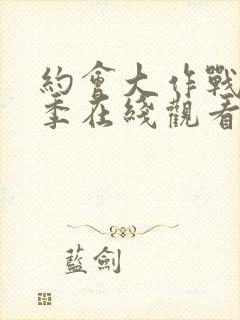 約會大作戰
季在綫觀看
藍劍